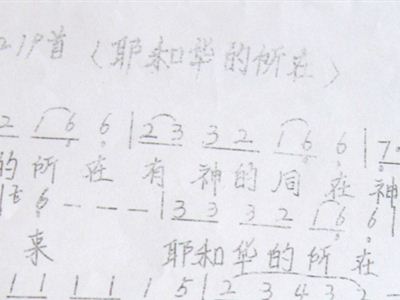 219首（耶和华的所在）
2 1 6 6 | 2 3 3 2 1 6 6 | 7
的所在有神的同在神
6 - - - | 3 3 3 2 1 6 6
来 耶和华的所在
1 1 1 1 1 5 | 2 3 4 3 2 -